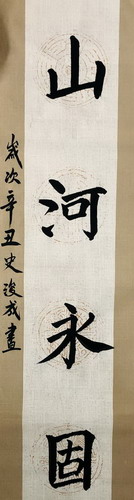 山河永固
歲次辛丑史俊成書